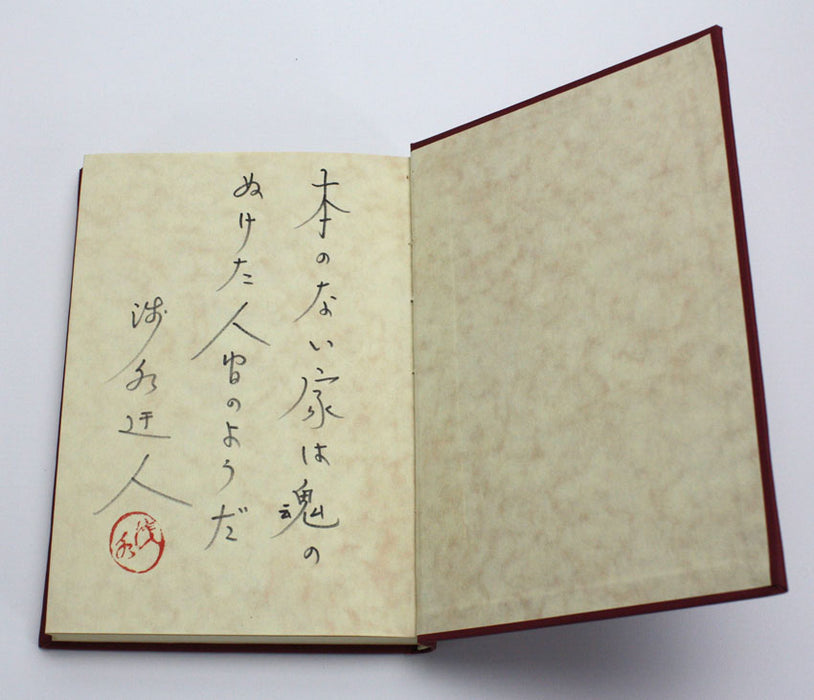 本のない家は魂の
ぬけた人間のようだ
浅水迂人